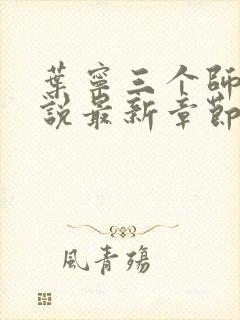 葉寧三个師
說最新章節
風青殤